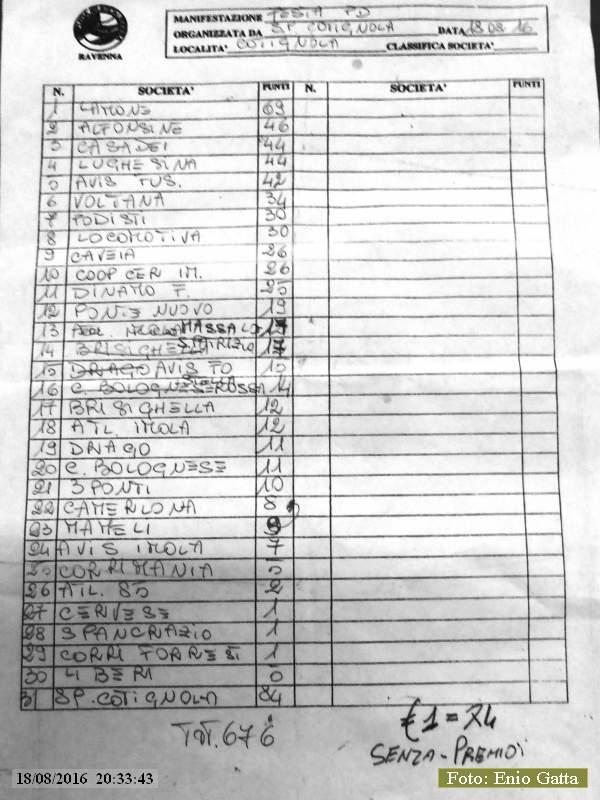 RAVENNA
MANIFESTAZIONE FESTA PD
ORGANIZZATA DA SP. COTIGNOLA DATA 18.08.16
LOCALITA' COTIGNOLA CLASSIFICA SOCIETA'
N. SOCIETA' PUNTI N. SOCIETA' PUNTI
1 LAMONE 69
2 ALFONSINE 46
3 CASADEI 44
4 LUGHESINA 44
5 AVIS FUS. 42
6 VOLTANA 34
7 PODISTI 30
8 LOCOMOTIVA 30
9 CAVEIA 26
10 COOP CER IM. 26
11 DINAMO F. 25
12 PONTE NUOVO 19
13 MASSALO 17
14 S.PATRIZIO 17
15 AVIS TO 15
16 STELLA ROSSA 14
17 BRISIGHELLA 12
18 ATL. IMOLA 12
19 DRAGO 11
20 C. BOLOGNESE 11
21 3 PONTI 10
22 CAMERLONA 8
23 MAMELI 9
24 AVIS IMOLA 7
25 CORRIMANIA 5
26 ATL. 85 2
27 CERVESE 1
28 S PANCRAZIO 1
29 CORRI FORRESI 1
30 LIBERI 0
31 SP. COTIGNOLA 84
TOT. 676
€1 = 74
SENZA - PREMIO
18/08/2016 20:33:43
Foto: Enio Gatta